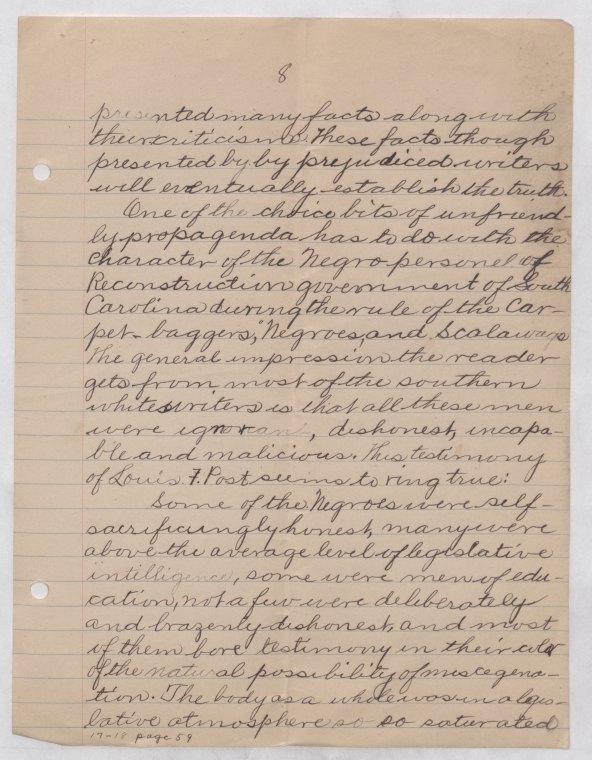 8
presented many facts along with
their criticisms. These facts though
presented by by prejudiced writers
will eventually establish the truth.
One of the choice bits of unfriend-
ly propagenda has to do with the
character of the Negro personel of
Reconstruction government of South
Carolina during the rule of the Car-
pet-baggers," Negroes, and Scalawags
The general impression the reader
gets from most of the southern
white writers is that all these men
were ignorant, dishonest, incapa-
ble and malicious. This testimony
of Louis F. Post seems to ring true:
Some of the Negroes were self-
sacrificingly honest, many were
above the average level of legislative
intelligence, some were men of edu-
cation, not a few were deliberately
and brazenly dishonest, and most
of them bore testimony in their color
of the natural possibility of miscegena-
tion. The body as a whole was in a legis-
lative atmosphere so so saturated
17-18 page 59